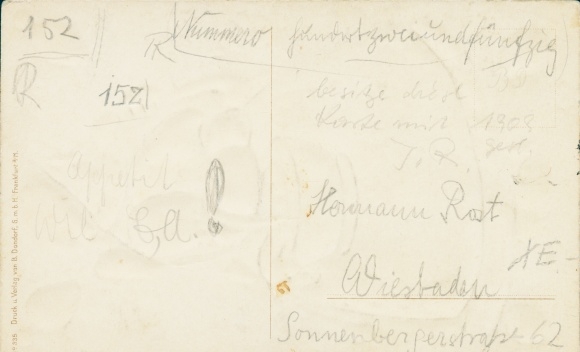 152
R
152
Nummero hundertzweiundfünfzig
R
besitze diese
Karte mit 1909
J. R. gest.
Appetit
wie
!
Hermann Rost
Wiesbaden
Sonnenbergerstraße 62
Druck u. Verlag von B. Dondorf, G. m. b. H. Frankfurt a/M.